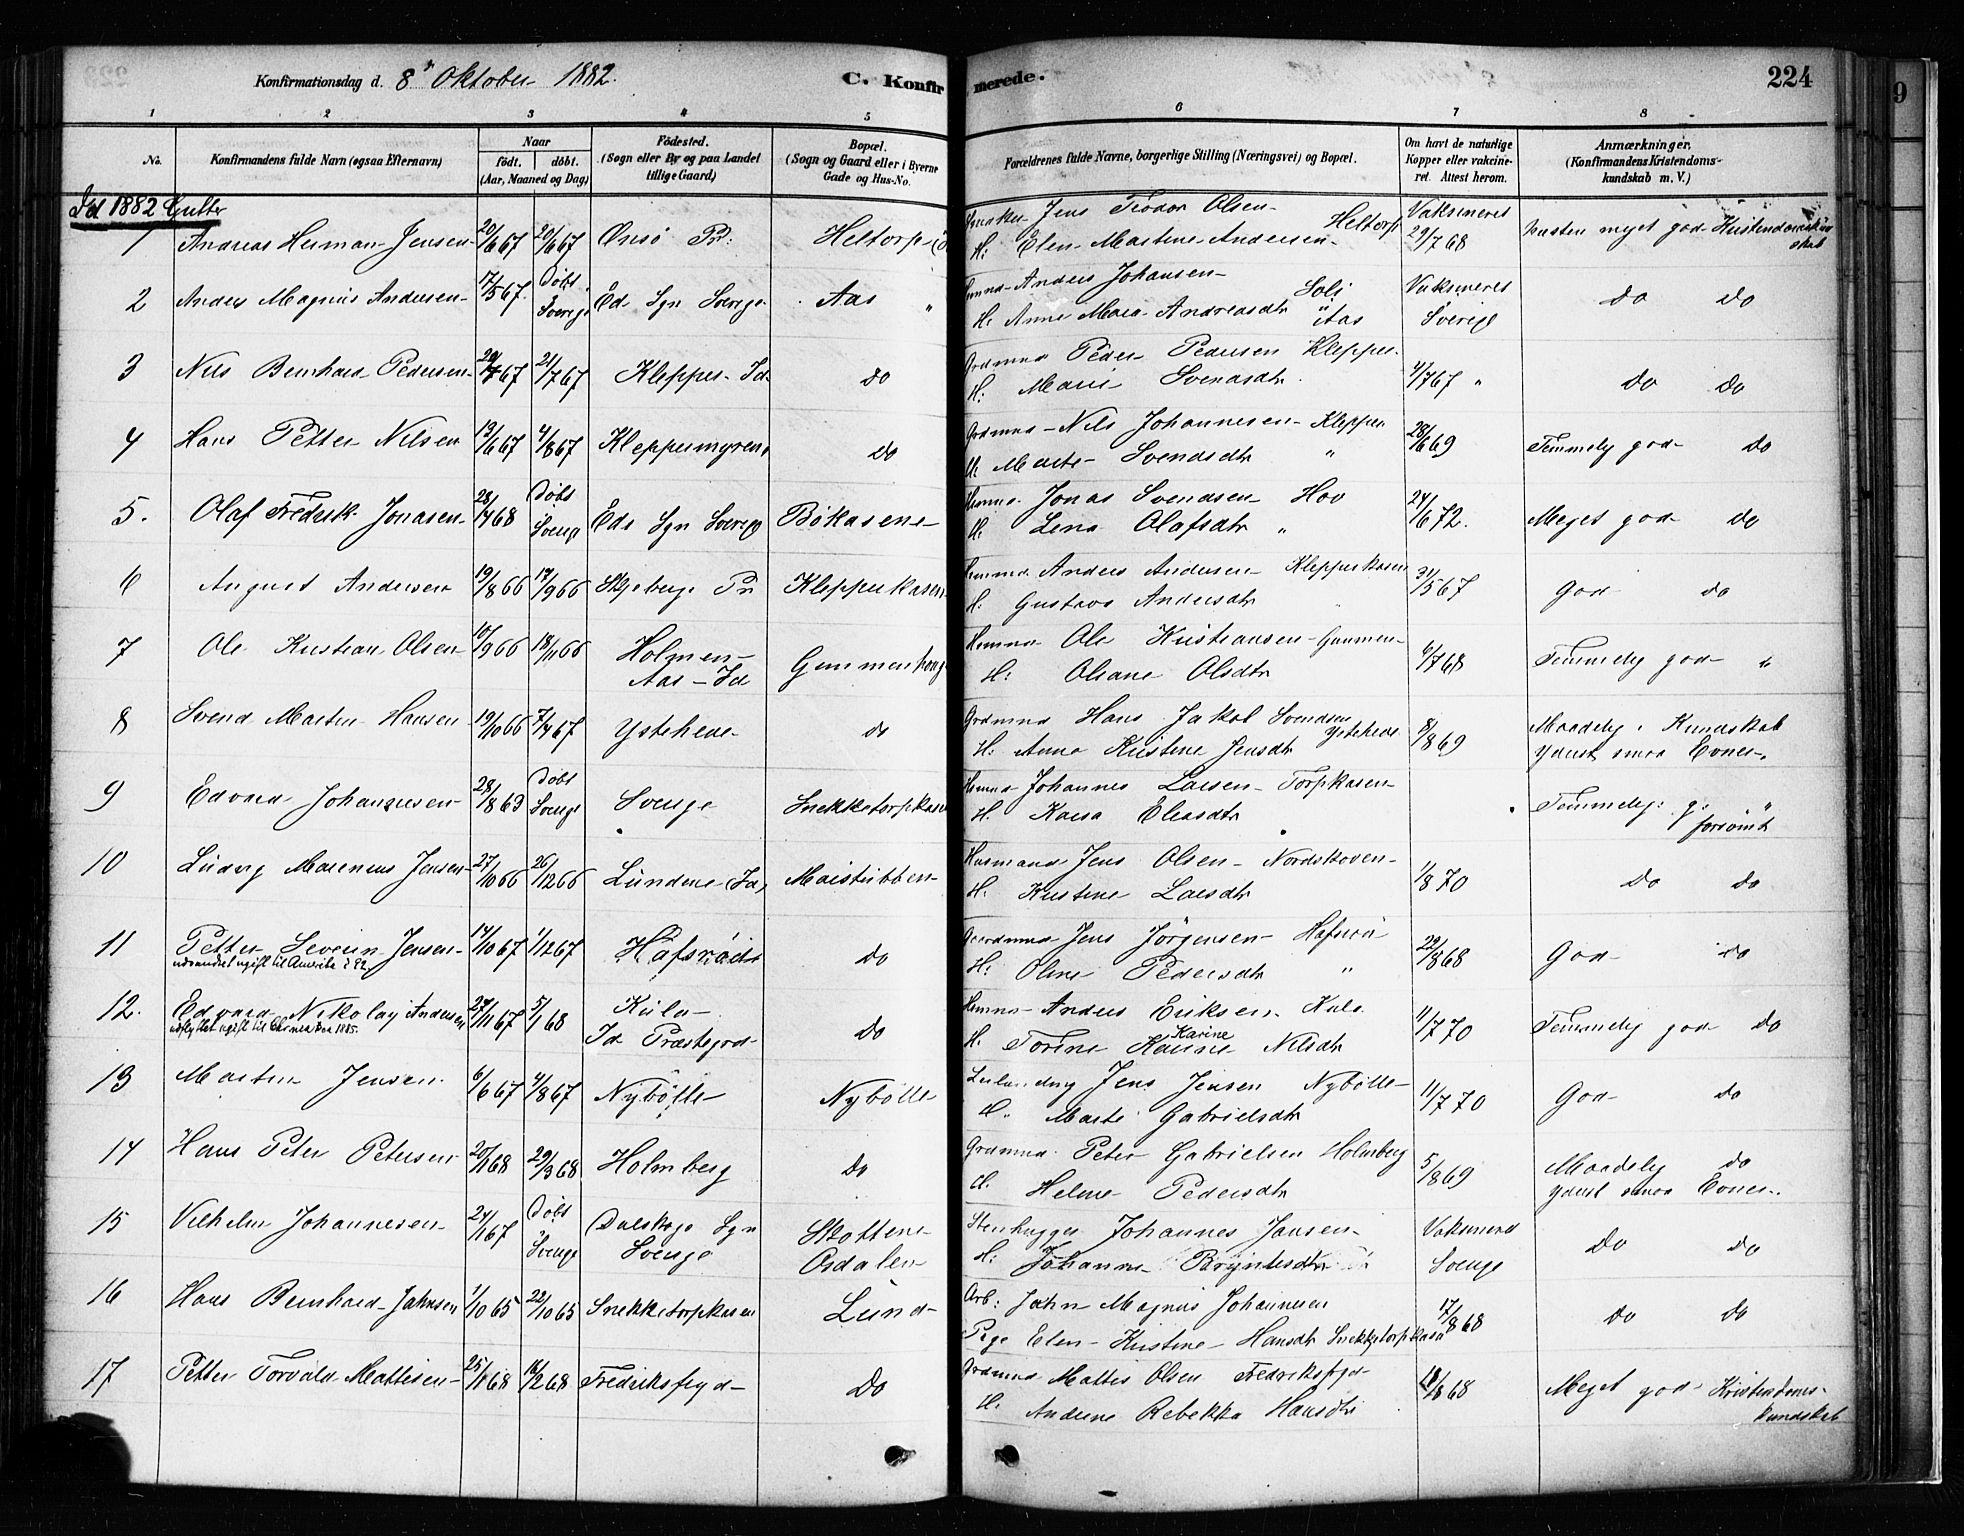 Konfirmationsdag d. 8de Oktober 1882.
C. Konfir
merede.
224
9
1 2 3 4 5 6 7 8
No.
Konfirmandens fulde Navn (ogsaa Efternavn)
Naar
født. døbt.
(Aar, Maaned og Dag)
Fødested.
(Sogn eller By og paa Landet
tillige Gaard)
Bopæl.
(Sogn og Gaard eller i Byerne
Gade og Hus-No.
Forældrenes fulde Navne, borgerlige Stilling (Næringsvei) og Bopæl.
Om havt de naturlige
Kopper eller vakcine-
ret. Attest herom.
Anmærkninger.
(Konfirmandens Kristendoms-
kundskab m. V.)
Id 1882 Gutter
1 Andreas Herman Jensen 20/6 67 20/6 67 Onsø Pr: Heltorp
Jens Teodor Olsen Heltorp
H: Elen Martine Andersen
Vaksineret
29/7 68
Næsten meget god Kristendomskund
skab
2 Anders Magnus Andersen 17/5 67. Døbt i Sverige Ed Sgn Sverige Aas "
Anders Johansen
H: Anne Maia Andreasdtr Aas
Vaksineret
Sverige
Do Do
3 Nils Bernhard Pedersen 67 21/7 67 Klepper Id Do
Grdmnd Peder Pedersen Klepper
H: Marie Svendsdtr.
4/7 67 "
Do Do
4 Hans Petter Nilsen 13/6 67 4/8 67 Kleppermyren Do
Grdmnd Nils Johannesen Klepper
H. Marte Svendsdtr "
28/6 69
Temmelig god Do
5. Olaf Frederik Jonasen 28/4 68 Døbt i Sverige Eds Sgn Sverige Bøkasene
Jonas Svendsen Hov
H. Lena Olafsdtr "
24/6 72.
Meget god do
6 August Andersen 19/8 66 17/9 66 Skjeberg Pr Klepperkasen
Anders Andersen Klepperkasen
H: Gustava Andersdtr "
31/5 67
God do
7 Ole Kristian Olsen 10/9 66 18/11 66 Holmen
Aas Id Gunmenhoug
Ole Kristiansen Gunmen
H: Oliane Olsdtr
6/7 68
Temmelig god "
8 Svend Martin Hansen 19/10 66 7/4 67 Ystehede do
Grdmnd Hans Jakob Svendsen
Ystehede
H: Anne Kristine Jensdtr
8/8 69
Maadelig Kundskab
yderst smaa Evner.
9 Edvard Johannesen 28/8 63 Døbt Sverige Sverige Snekketorpkasen
Johannes Larsen Torpkasen
H. Kaisa Eliasdtr
Temmelig: g: "
forsømt
10 Ludvig Marenius Jensen 27/10 66 26/12 66 Lundene (Id) Moistubben
Husmand Jens Olsen Nordskoven
H. Kristine Larsdtr
1/8 70
Do Do
11 Petter Severin Jensen 14/10 67 1/12 67 Hafsrød Do
udvandret ugift til Amerika i 92
Gaardmnd Jens Jørgensen Hafsrø
H: Oline Pedersdtr "
22/8 68
God do
12. Edvard Nikolay Andersen 27/11 67 5/1 68 Kula
Id Præstegrd Do
Anders Eriksen Kula
Karine
H. Torine Karine Nilsdtr
11/7 70
Temmelig god Do
13 Martin Jensen 6/6 67 4/8 67 Nybølle Nybølle
Leilending Jens Jensen Nybølle
H. Marte Gabrielsdtr
11/7 70
God Do
14 Hans Peter Petersen 20/1 68 29/3 68 Holmberg Do
Grdmnd Peter Gabrielsen Holmberg
H. Helene Pedersdtr
5/8 69
Maadelig Do
yderst smaa Evner.
15 Vilhelm Johannesen 24/1 67 Døbt i Sverige Dalskogs Sgn
Sverige Skottene
Osdalen
Stenhugger Johannes Jansen
H: Johanne Bryntesdtr
Vaksinerd
Sverige
Do Do
16 Hans Bernhard Jahnsen 1/10 65 22/10 65 Snekketorpkasen Lund
Arb: Jahn Magnus Johannesen
Pige Elen Kristine Hansdtr Snekketorpkasen
17/8 68
Do Do
17 Petter Torvald Mattisen 25/1 68 16/2 68 Fredriksfryd Do
Grdmnd Mattis Olsen Fredriksfryd
H. Andrine Rebekka Hansdtr
18/8 68
Meget god Kristendoms-
kundskab